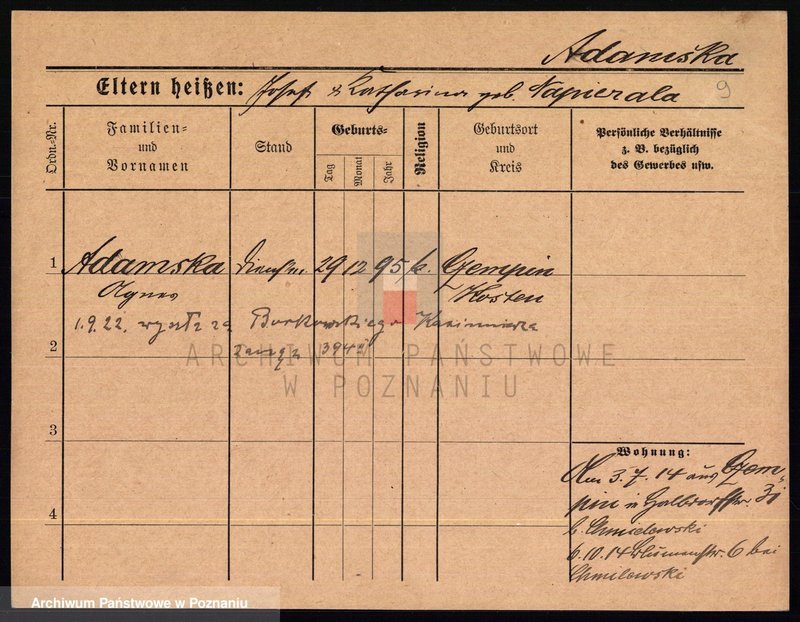 Adamska
Eltern heißen: Josef & Katharina geb. Napierala
9
Ordn.-Nr.
Familien- und Vornamen
Stand
Geburts-
Tag
Monat
Jahr
Religion
Geburtsort und Kreis
Persönliche Verhältnisse
z. B. bezüglich
des Gewerbes usw.
1 Adamska 29 12 95 k. Gempin
Agnes Kosten
1.9.22. Borkowskiego Kazimierza
2
3
4
Wohnung:
3.7.14 aus Gem-
pin in
b. Chmielewski
6.10.14 Blumenstr. 6 bei
Chmilewski
ARCHIWUM PAŃSTWOWE
W POZNANIU
Archiwum Państwowe w Poznaniu